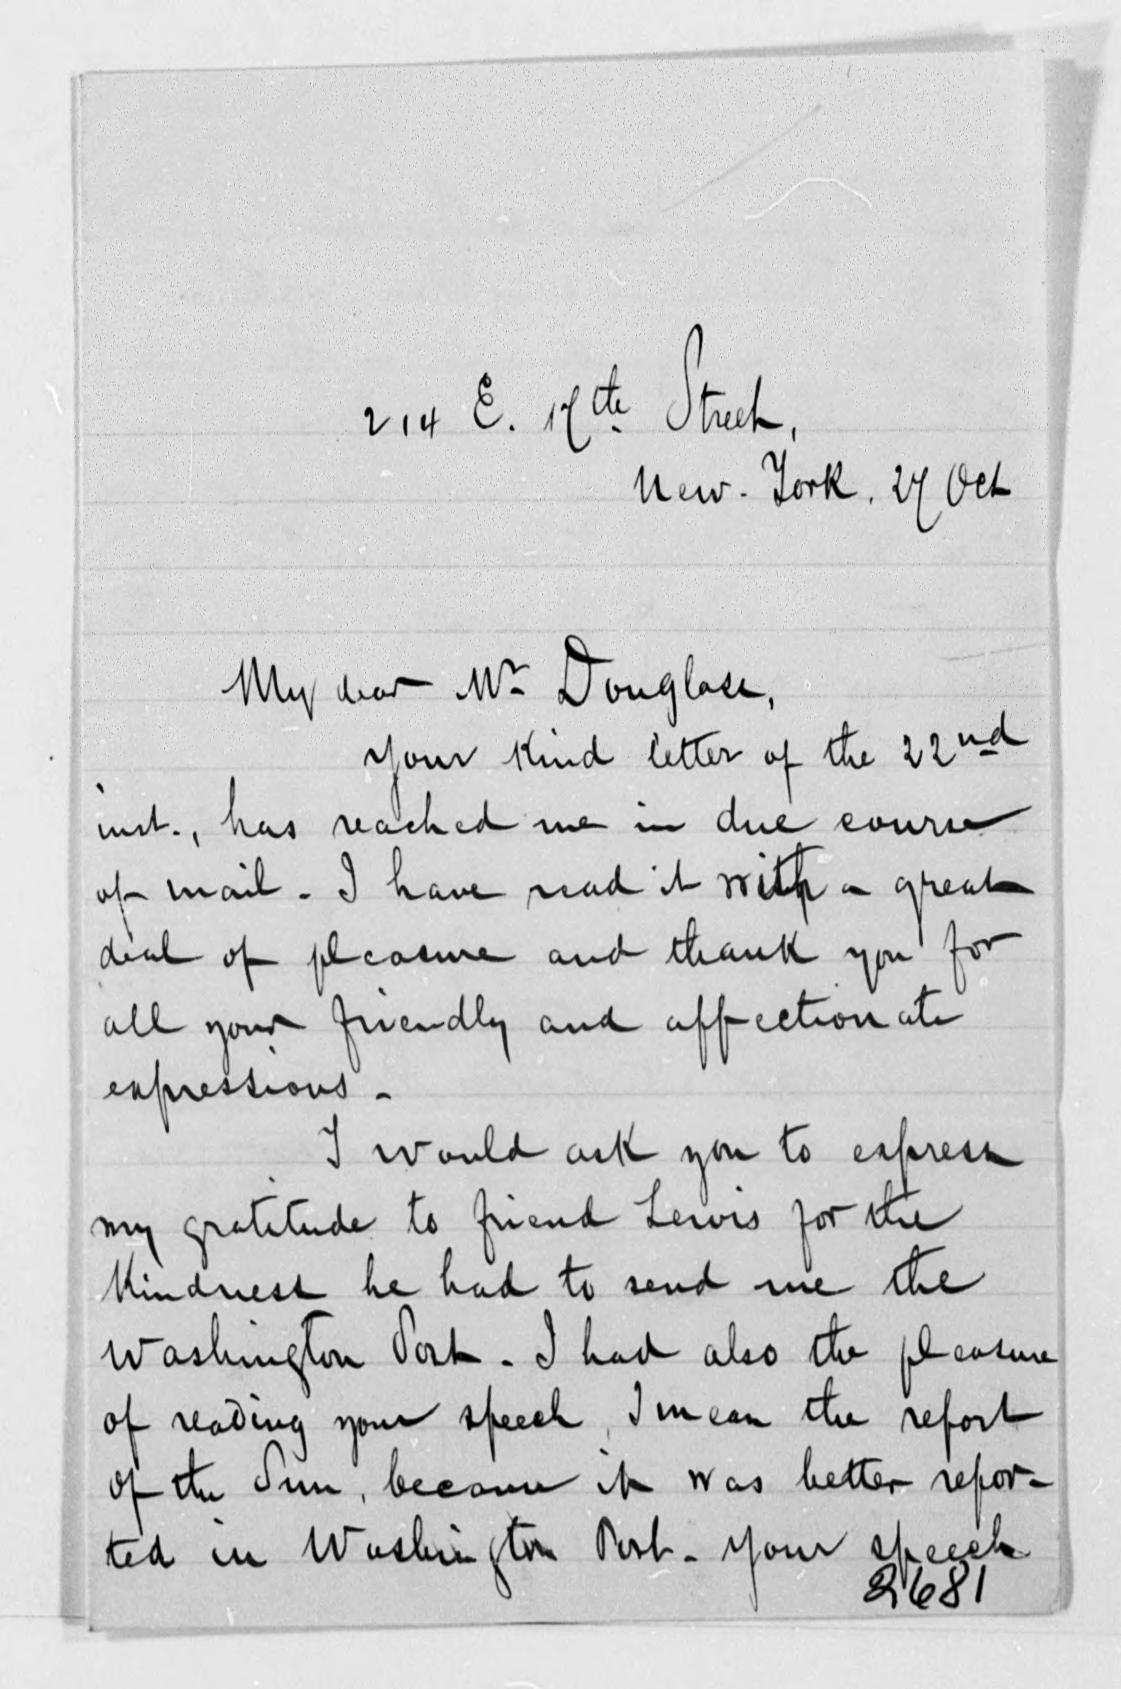 214 E. 17th Street,
New-York. 27 Oct
My dear Mr Douglass,
Your Kind letter of the 22nd
inst., has reached me in due course
of mail - I have read it with a great
deal of pleasure and thank you for
all your friendly and affectionate
expressions -
I would ask you to express
my gratitude to friend Lewis for the
Kindness he had to send me the
Washington Post - I had also the pleasure
of reading your speech, I mean the report
of the Sun, because it was better repor-
ted in Washington Post - Your speech
2681